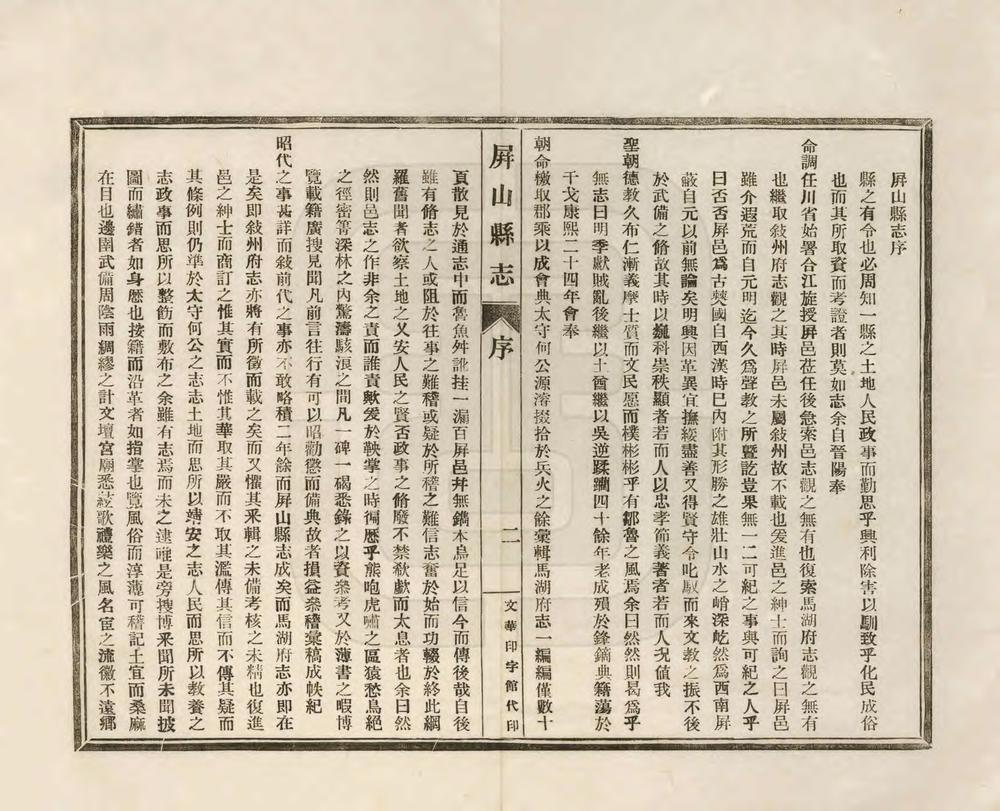 屏山縣志序
縣之有令也必周知一縣之土地人民政事而勤思乎興利除害以馴致乎化民成俗
也而其所取資而考證者則莫如志余自晉陽奉
命調任川省始署合江旋授屏邑莅任後急索邑志觀之無有也復索馬湖府志觀之無有
也繼取敍州府志觀之其時屏邑未屬敍州故不載也爰進邑之紳士而詢之曰屏邑
雖介遐荒而自元明迄今久爲聲教之所曁訖豈果無一二可紀之事與可紀之人乎
曰否否屏邑爲古僰國自西漢時巳內附其形勝之雄壯山水之峭深屹然爲西南屏
蔽自元以前無論矣明興因革異宜撫綏盡善又得賢守令叱馭而來文教之振不後
於武備之脩故其時以巍科崇秩顯者若而人以忠孝節義著者若而人况値我
聖朝德教久布仁漸義摩士質而文民愿而樸彬彬乎有鄒魯之風焉余曰然然則曷爲乎
無志曰明季獻賊亂後繼以土酋繼以吳逆蹂躪四十餘年老成殞於鋒鏑典籍蕩於
干戈康熙二十四年會奉
朝命檄取郡乘以成會典太守何公源濬掇拾於兵火之餘彙輯馬湖府志一編編僅數十
屏山縣志
序
二
文華印字館代印
頁散見於通志中而魯魚舛訛挂一漏百屏邑幷無鐫本烏足以信今而傳後哉自後
雖有脩志之人或阻於往事之難稽或疑於所稽之難信志奮於始而功輟於終此綱
羅舊聞者欲察土地之乂安人民之賢否政事之脩廢不禁欷歔而太息者也余曰然
然則邑志之作非余之責而誰責歟爰於鞅掌之時徧歷乎熊咆虎嘯之區猿愁鳥絕
之徑密箐深林之內驚濤駭浪之間凡一碑一碣悉錄之以資叅考又於薄書之暇博
覽載籍廣搜見聞凡前言往行有可以昭勸懲而備典故者損益叅稽彙稿成帙紀
昭代之事甚詳而敍前代之事亦不敢略積二年餘而屏山縣志成矣而馬湖府志亦卽在
是矣卽敍州府志亦將有所徵而載之矣而又懼其釆輯之未備考核之未精也復進
邑之紳士而商訂之惟其實而不惟其華取其嚴而不取其濫傳其信而不傳其疑而
其條例則仍準於太守何公之志志土地而思所以靖安之志人民而思所以教養之
志政事而思所以整飭而敷布之余雖有志焉而未之逮唯是旁搜博釆聞所未聞披
圖而繡錯者如身歷也按籍而沿革者如指掌也覽風俗而淳薄可稽記土宜而桑麻
在目也邊圉武備周陰雨綢繆之計文壇宮廟悉絃歌禮樂之風名宦之流徽不遠鄉